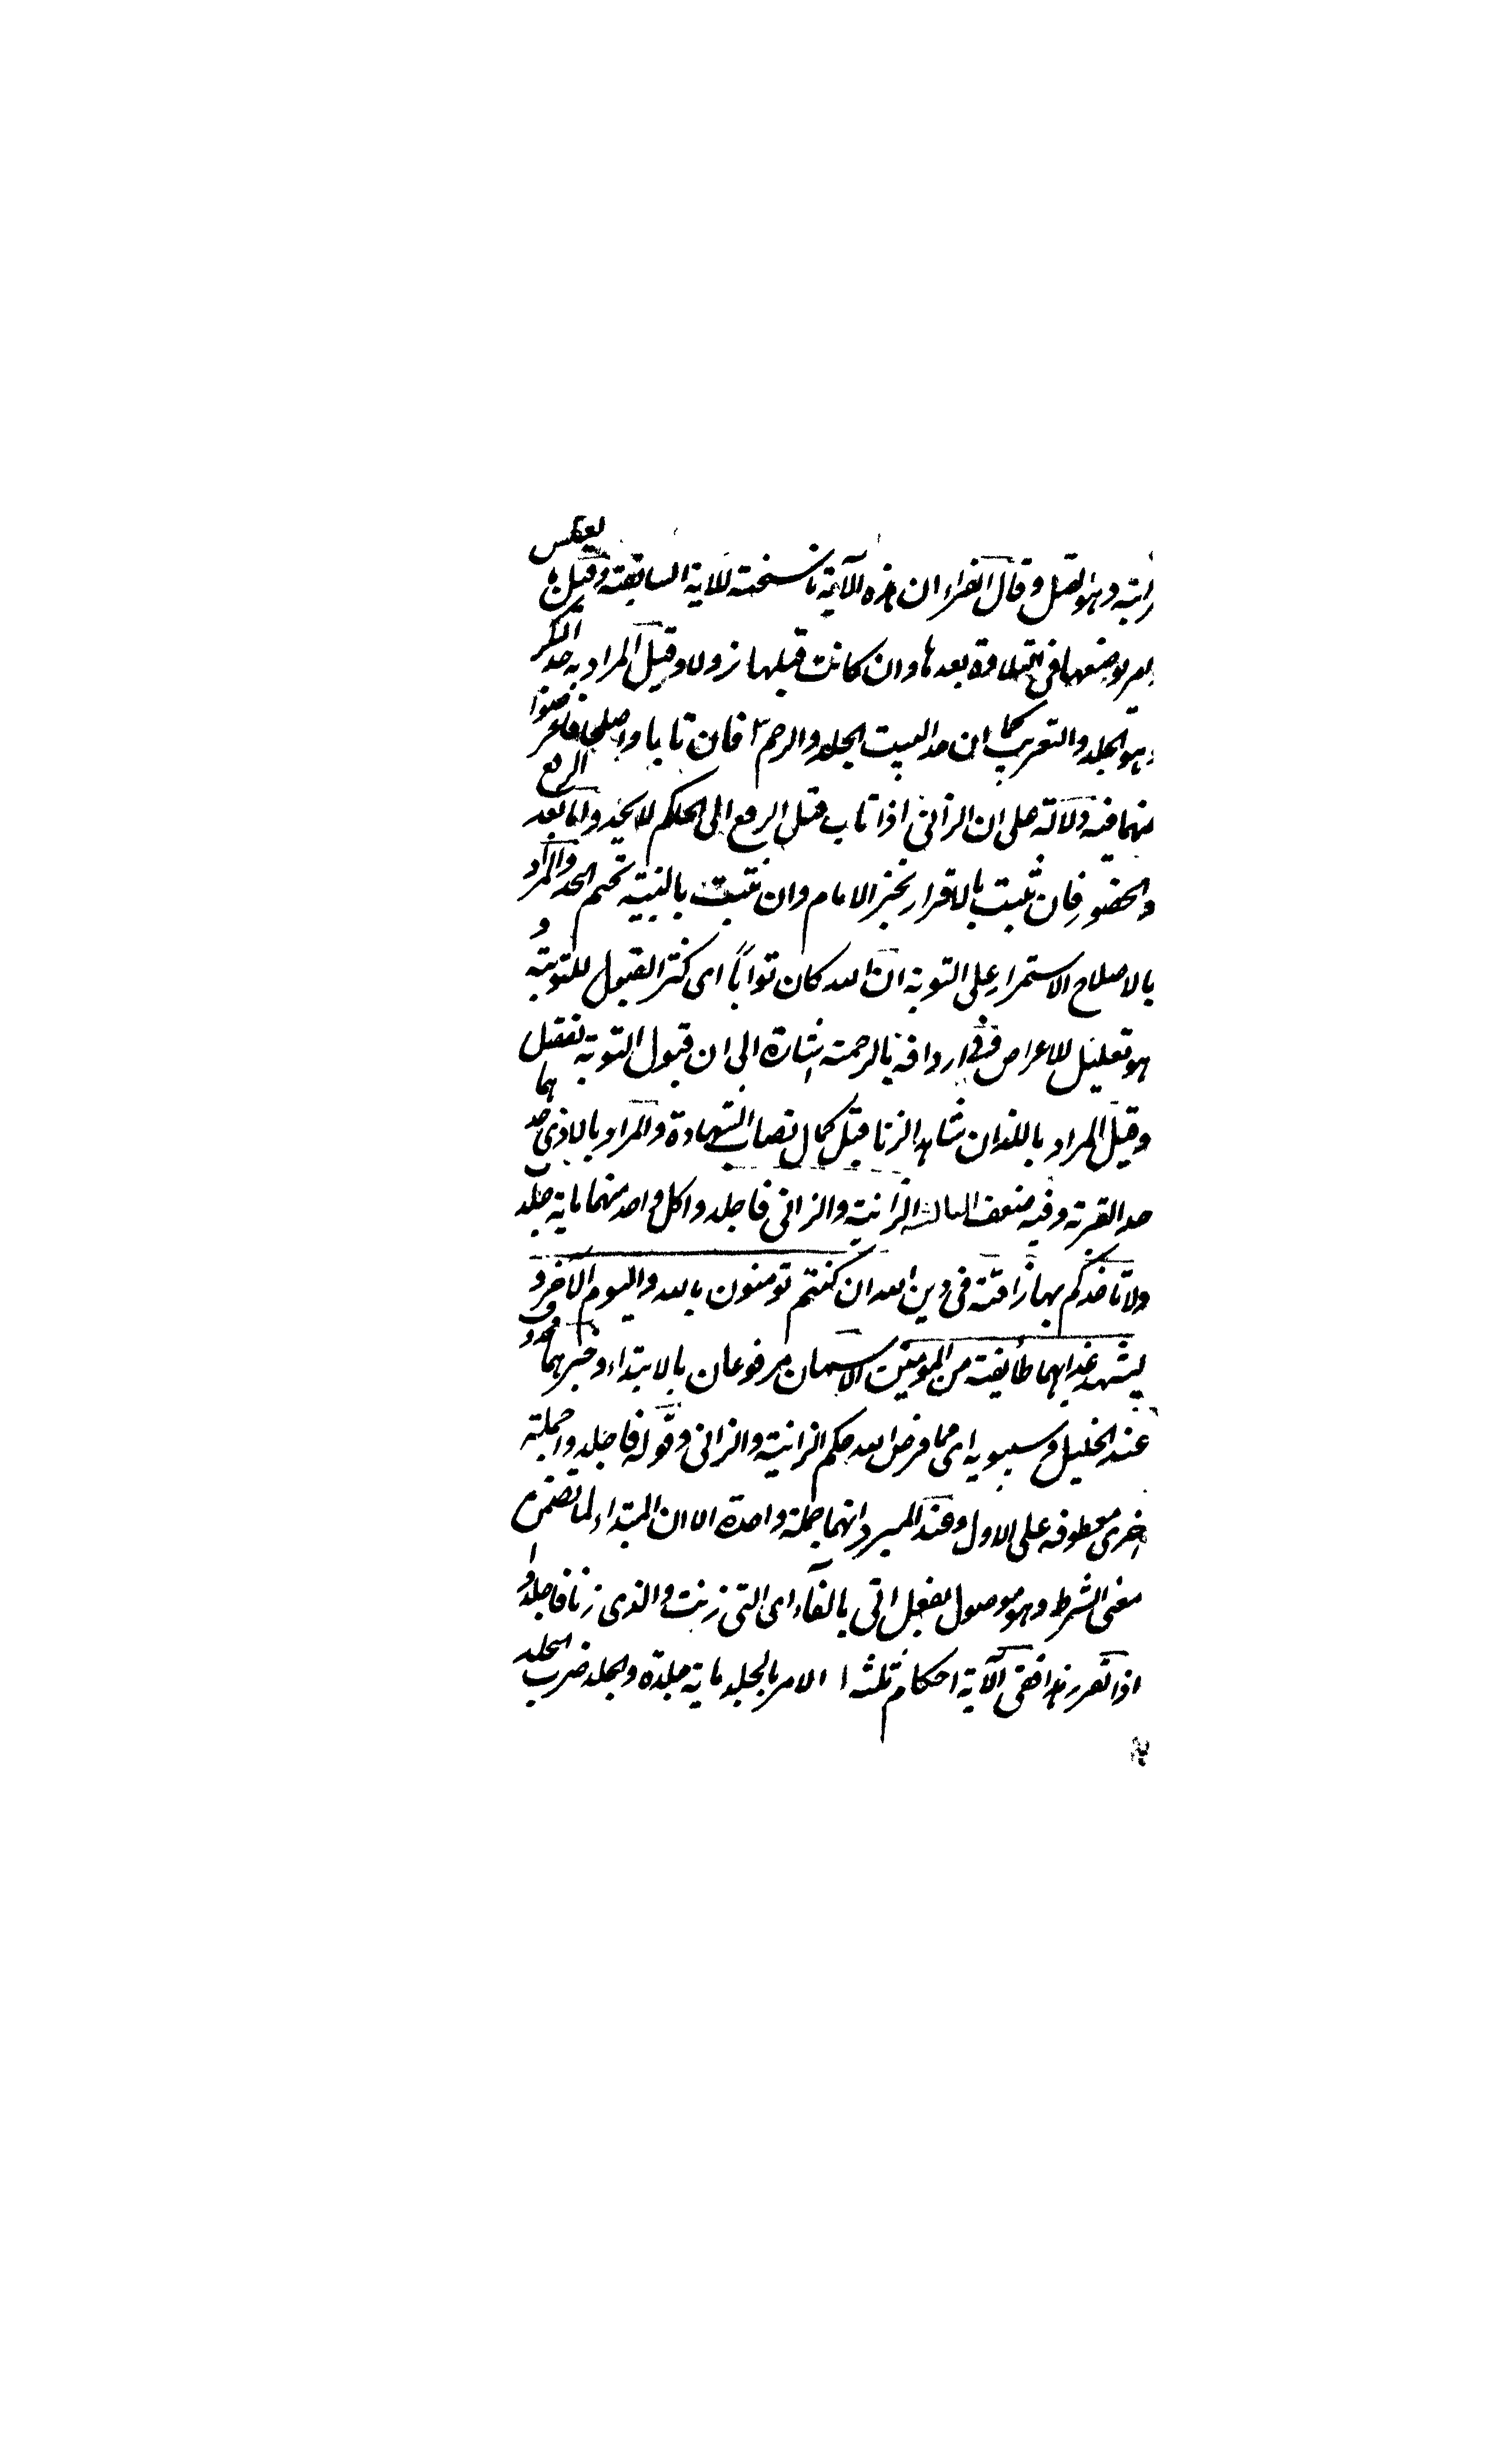 وهو القتل وقال الفراء ان هذه الآية ناسخة للاية السابقة وقيل بالعكس
بوضعها في التلاوة بعدها وان كانت قبلها نزولا وقيل المراد به حد البكر
وهو الجلد والتغريب كما ان حد الثيب الجلد والرجم ٣ فان تابا واصلحا فاعرضوا
عنهما فيه دلالة على ان الزاني اذا تاب قبل الرفع الى الحاكم لا يحد واما بعد الرفع
والحضور فان ثبت بالاقرار تخير الامام وان ثبت بالبينة تحتم الحد والمراد
بالاصلاح الاستمرار على التوبة ان الله كان تواباً اى كثر القبول للتوبة و
هو تعليل للاعراض وفي اردافه بالرحمة اشارة الى ان قبول التوبة تفضل
وقيل المراد باللذان شاهدا الزنا قبل كمال نصاب الشهادة والمراد بالاذى حدهما
حد الفرية وفيه ضعف الثالثة الزانية والزاني فاجلدوا كل واحد منهما ماية جلدة
ولا تاخذكم بهما رافة في دين الله ان كنتم تومنون بالله واليوم الآخر و
ليشهد عذابهما طايفة من المومنين الاسمان مرفوعان بالابتداء وخبرهما محذوف
عند الخليل وسيبويه اى مما فرض الله حكم الزانية والزاني وقوله فاجلدوا جملة
اخرى معطوفه على الاول وعند المبرد انهما جملة واحدة الا ان المبتداء لما تضمن
معنى الشرط وهو موصول بفعل اتى بالفاء اى التي زنت والذى زنا فاجلدوا
اذا تقرر هذا ففى الآية احكام ثلثة ا الامر بالجلد ماية جلدة والجلد ضرب الجلد